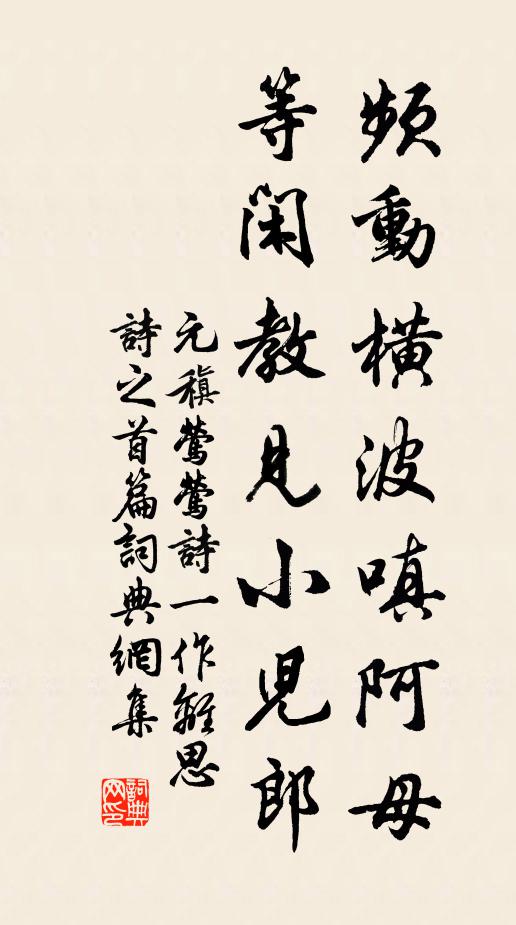 頻動橫波嗔阿母
等閑教見小児郎
元稹鶯鶯詩一作離思
詩之首篇詞典網集
詞典网印